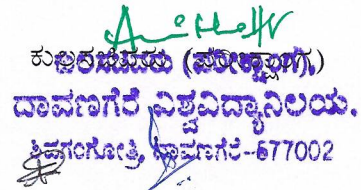 ಕುಲಸಚಿವರು (ಪರೀಕ್ಷಾಂಗ)
ದಾವಣಗೆರೆ ವಿಶ್ವವಿದ್ಯಾನಿಲಯ.
ಶಿವಗಂಗೋತ್ರಿ, ದಾವಣಗೆರೆ-577002